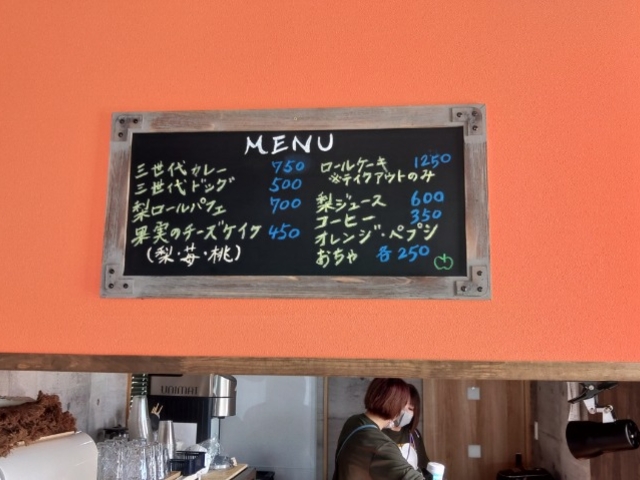 MENU
三世代カレー 750
三世代ドッグ 500
梨ロールパフェ 700
果実のチーズケイク 450
(梨・苺・桃)
ロールケーキ 1250
※テイクアウトのみ
梨ジュース 600
コーヒー 350
オレンジ・ペプシ
おちゃ 各250
UNIMAT